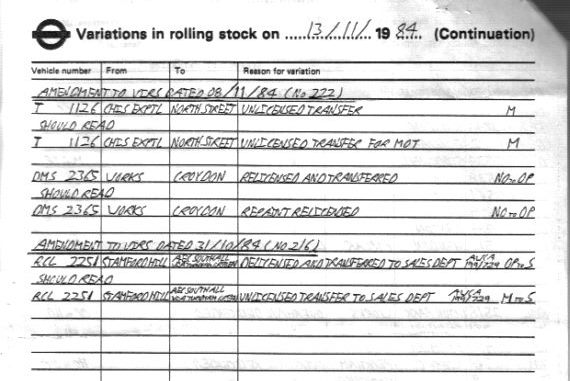 Variations in rolling stock on 13/11/ 1984. (Continuation)
Vehicle number From To Reason for variation
AMENDMENT TO VIRS DATED 08/11/84 (No 222)
T 1126 CHIS EXPTL NORTH STREET UNLICENSED TRANSFER M
SHOULD READ
T 1126 CHIS EXPTL NORTH STREET UNLICENSED TRANSFER FOR MOT M
DMS 2365 WORKS CROYDON RELICENSED AND TRANSFERRED NO to OP
SHOULD READ
DMS 2365 WORKS CROYDON REPAINT RELICENSED NO to OP
AMENDMENT TO VIRS DATED 31/10/84 (No 216)
RCL 2251 STAMFORD HILL AEC SOUTHALL DELICENSED AND TRANSFERRED TO SALES DEPT OP to S
SHOULD READ
RCL 2251 STAMFORD HILL AEC SOUTHALL UNLICENSED TRANSFER TO SALES DEPT M to S